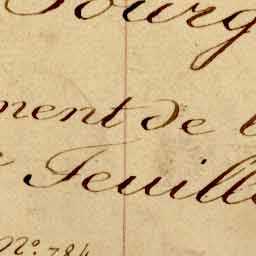 Bourg
ment de l
Feuille
No. 784